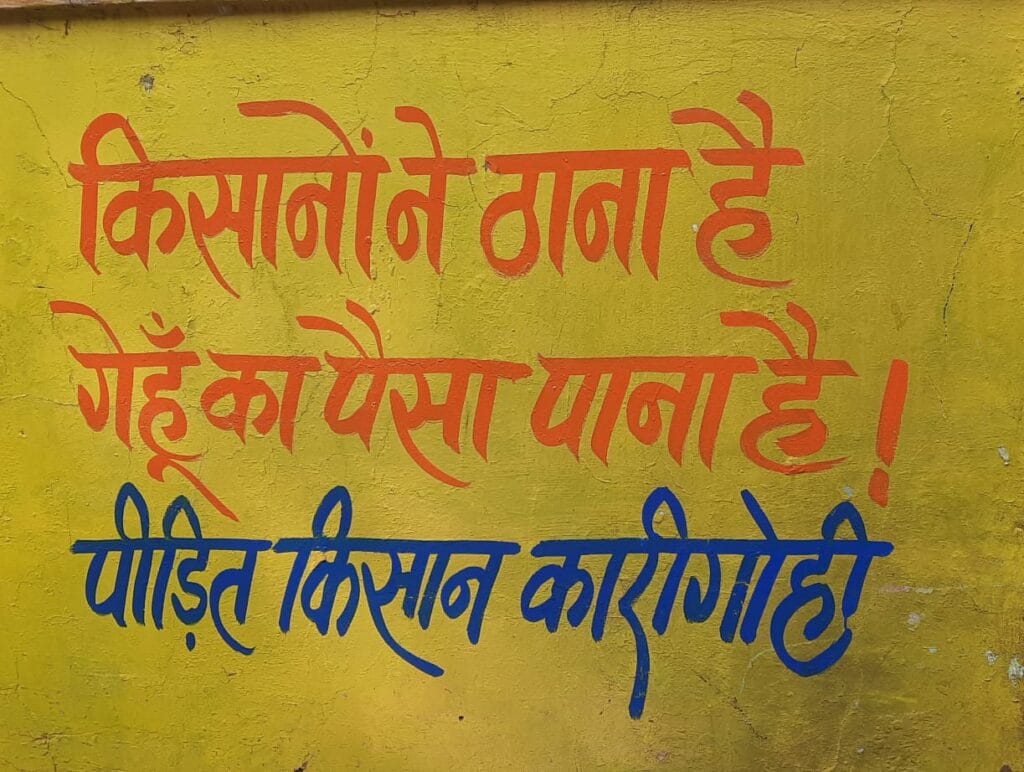 किसानों ने ठाना है
गेहूँ का पैसा पाना है!
पीड़ित किसान कारीगोही